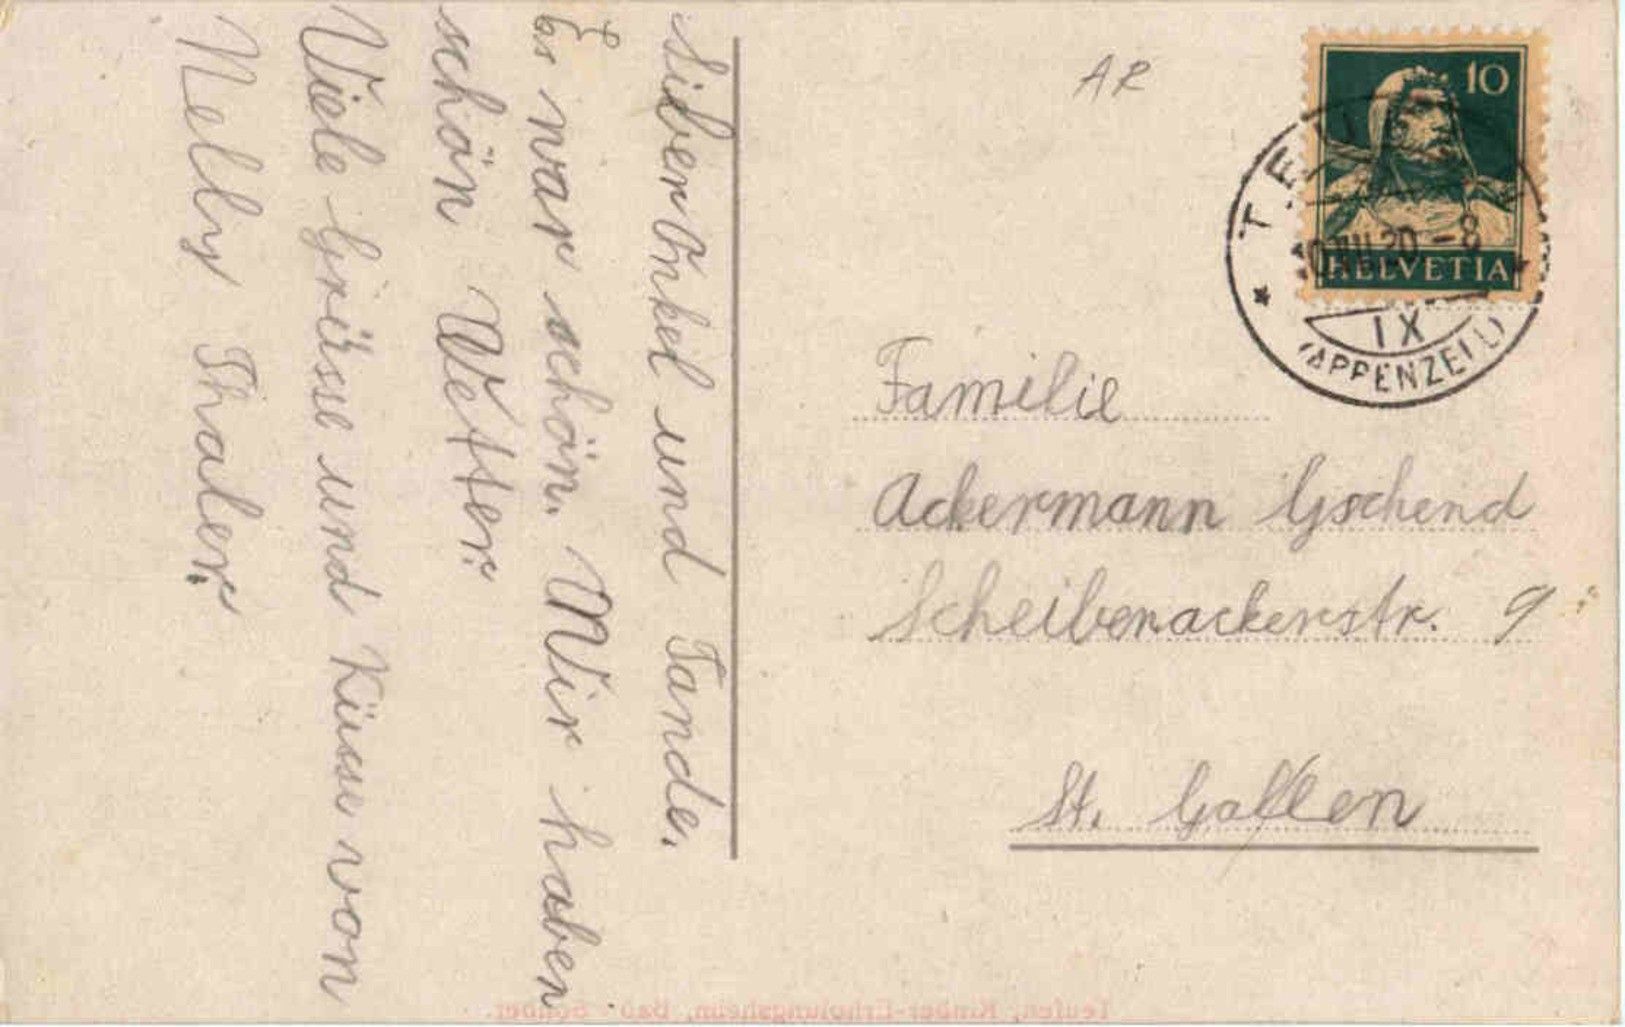 Siber Onkel und Tande.
Es war schön. Mir haben
schön Wetter.
Viele Grüsse und Küsse von
Nelly Thaler.
AR
10
HELVETIA
IX
(APPENZELL)
Familie
Ackermann Gschend
Scheibenackerstr. 9
St. Gallen
Teufen, Kinder-Erholungsheim, Bad